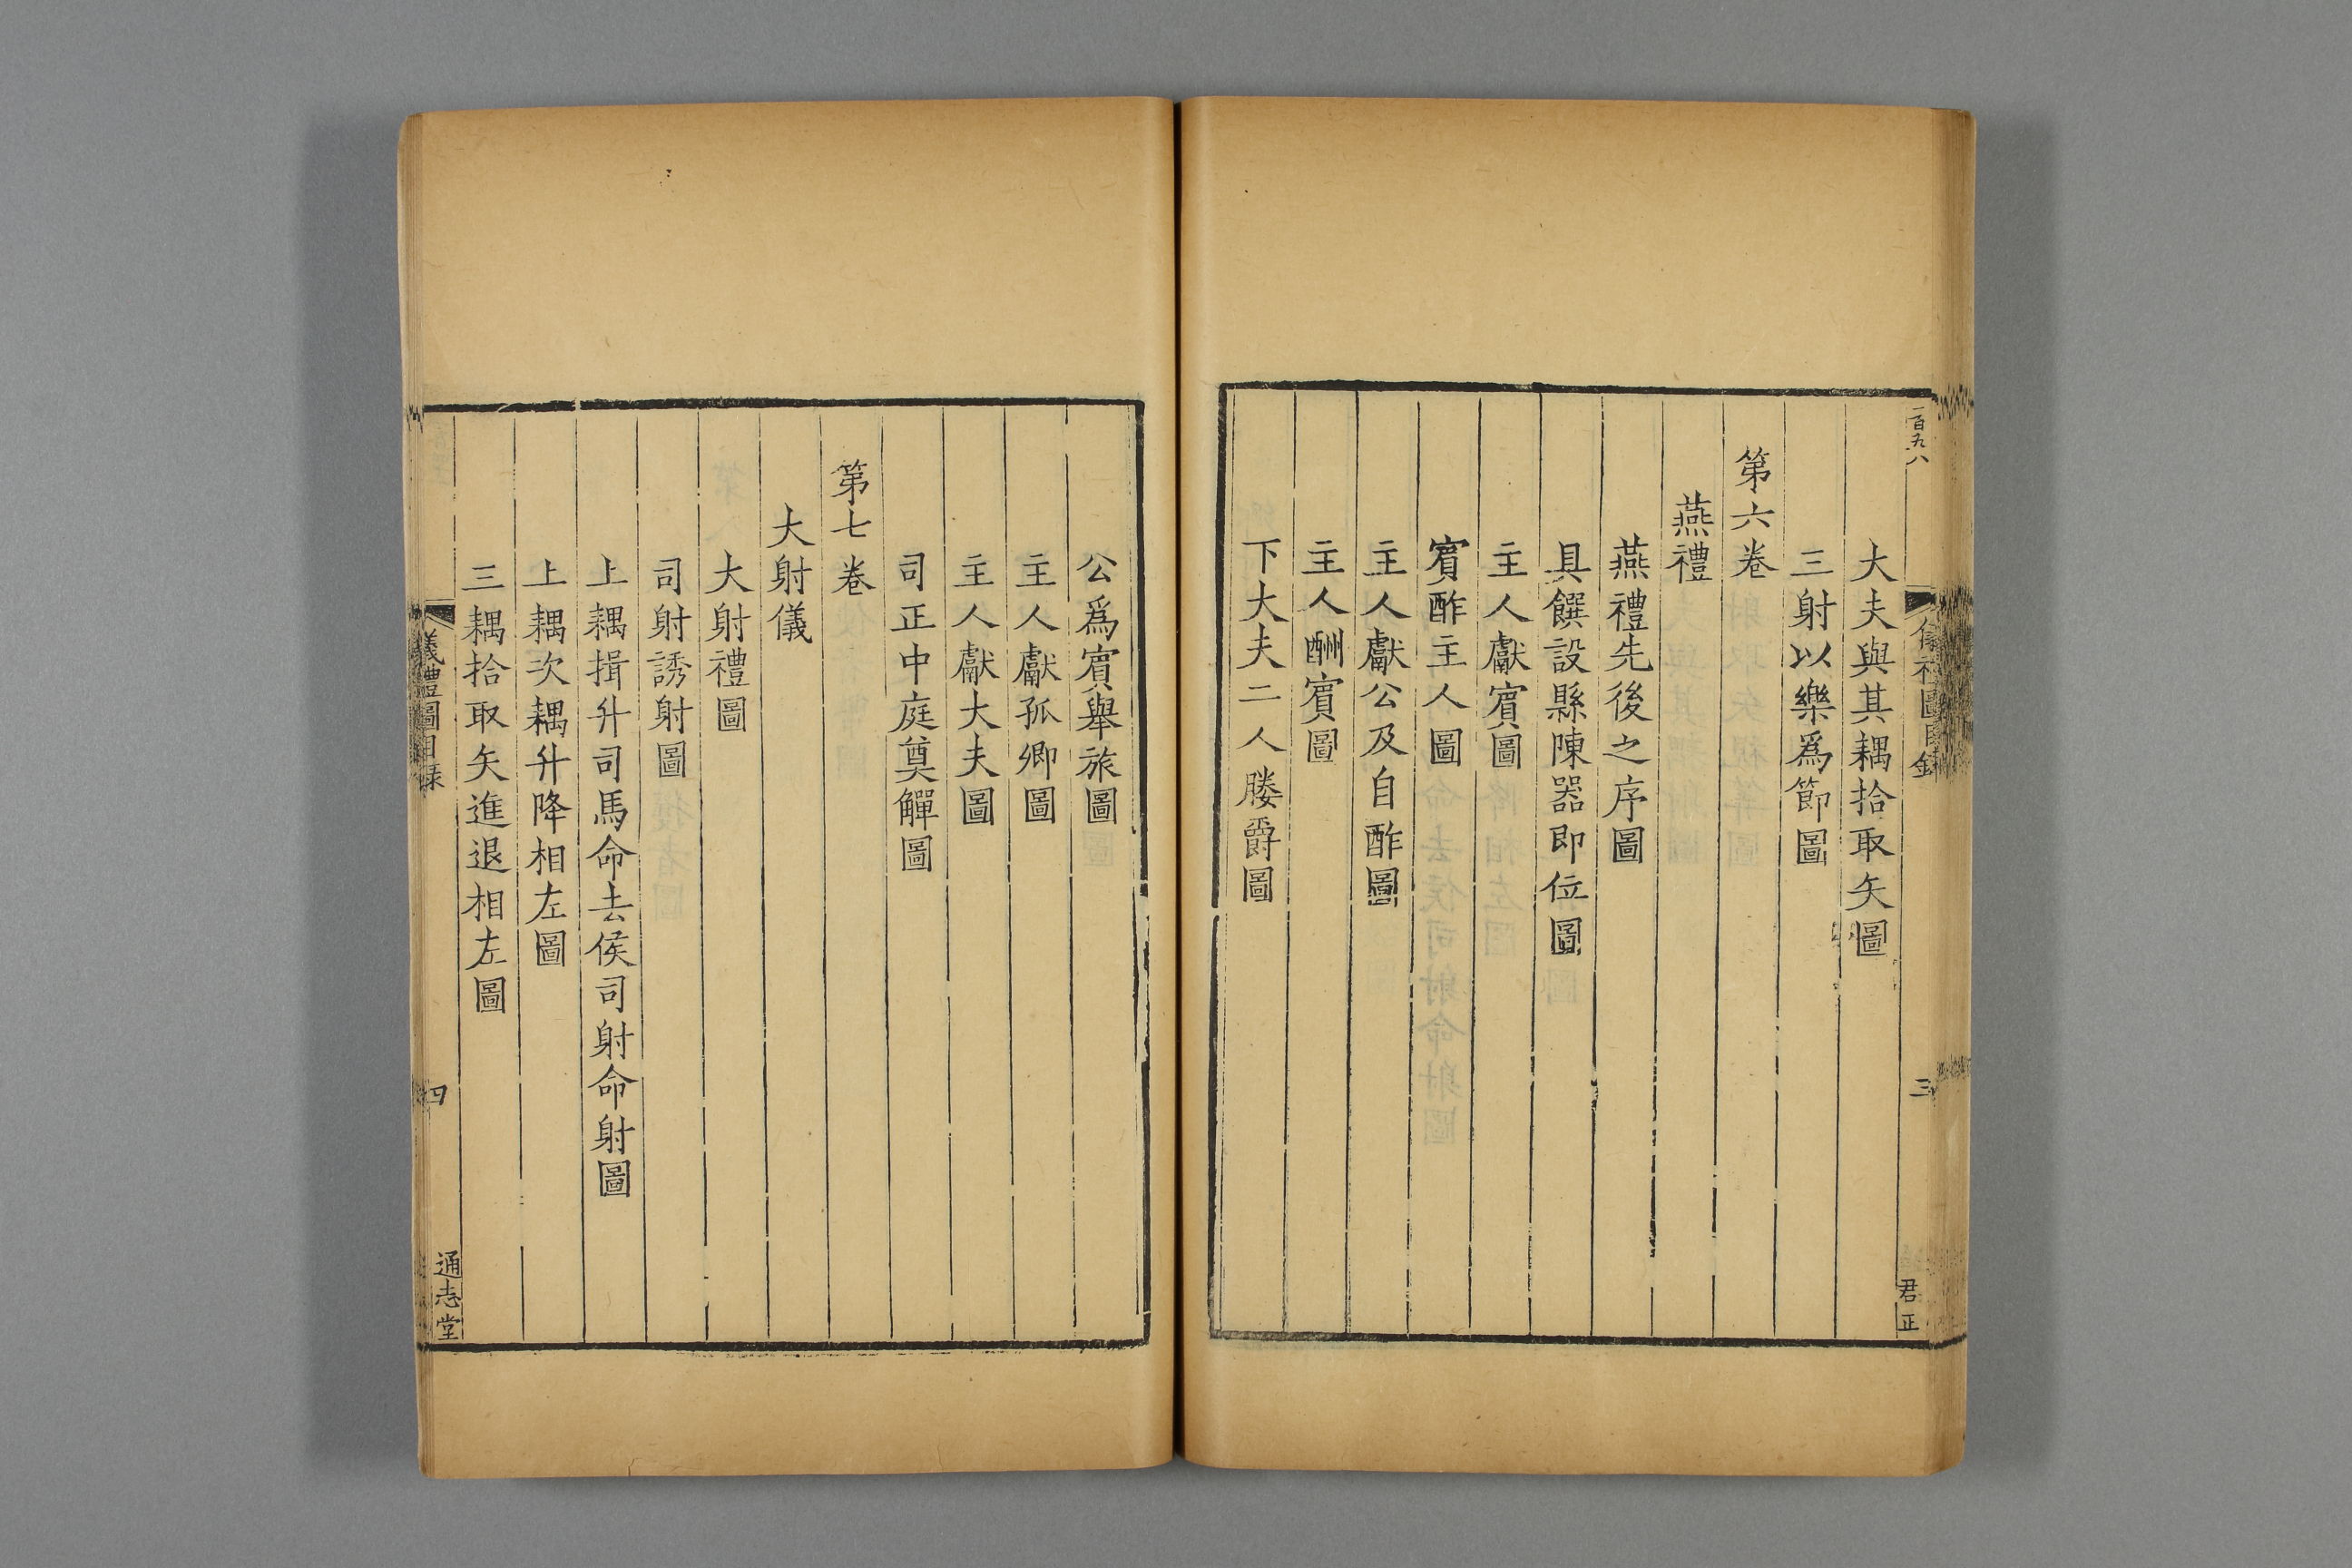 一百九八
儀禮圖目錄
三
君正
大夫與其耦拾取矢圖
三射以樂爲節圖
第六卷
燕禮
燕禮先後之序圖
具饌設縣陳器即位圖
主人獻賓圖
賓酢主人圖
主人獻公及自酢圖
主人酬賓圖
下大夫二人媵爵圖
公爲賓舉旅圖
主人獻孤卿圖
主人獻大夫圖
司正中庭奠觶圖
第七卷
大射儀
大射禮圖
司射誘射圖
上耦揖升司馬命去侯司射命射圖
上耦次耦升降相左圖
三耦拾取矢進退相左圖
儀禮圖目録
四
通志堂